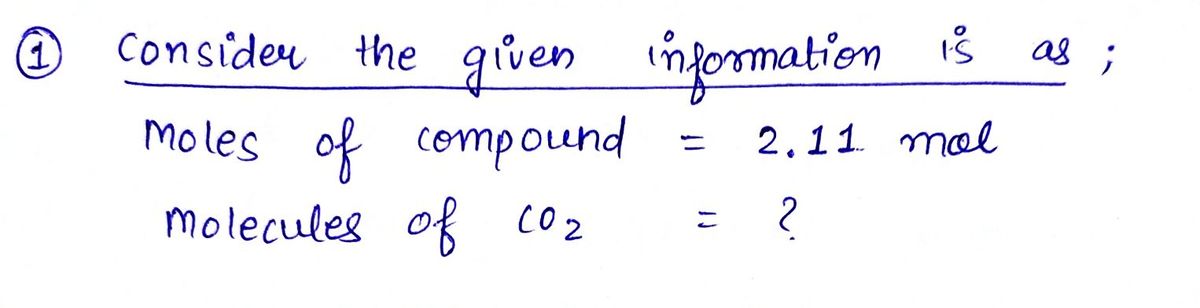 ① Consider the given information is as ;
Moles of compound = 2.11 mol
Molecules of CO2 = ?